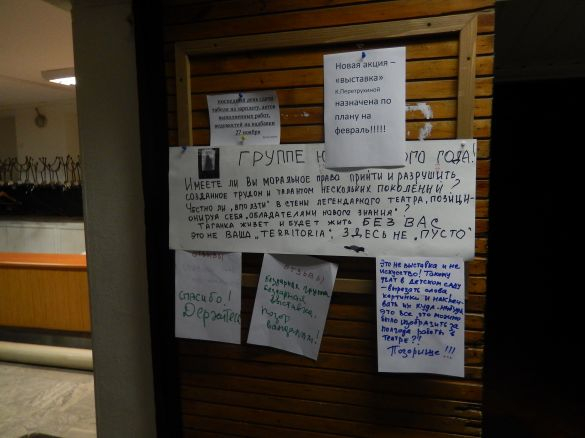 последний день сдачи
табеля на зарплату, актов
выполненных работ,
ведомостей на надбавки
27 ноября
Новая акция –
«выставка»
К.Перетрухиной
назначена по
плану на
февраль!!!!!
ГРУППЕ Ю ГО ГОДА!
ИМЕЕТЕ ЛИ ВЫ МОРАЛЬНОЕ ПРАВО ПРИЙТИ И РАЗРУШИТЬ
СОЗДАННОЕ ТРУДОМ И ТАЛАНТОМ НЕСКОЛЬКИХ ПОКОЛЕНИЙ?
ЧЕСТНО ЛИ „ВПОЛЗТИ" В СТЕНЫ ЛЕГЕНДАРНОГО ТЕАТРА, ПОЗИЦИ-
ОНИРУЯ СЕБЯ „ОБЛАДАТЕЛЯМИ НОВОГО ЗНАНИЯ"?
ТАГАНКА ЖИВЕТ И БУДЕТ ЖИТЬ БЕЗ ВАС
ЭТО НЕ ВАША „TERRITORIЯ", ЗДЕСЬ НЕ „ПУСТО"
ОТЗЫВЫ
спасибо!
Держитесь
ОТЗЫВЫ
Бездарная группа
бездарная
выставка.
Позор
вандалам!
Это не выставка и не
искусство! Такому
учат в детском саду
– вырезать слова
картинки и наклеи-
вать их куда-нибудь
это все, что можно
было изобразить за
полгода работы в
театре?!
Позорище!!!